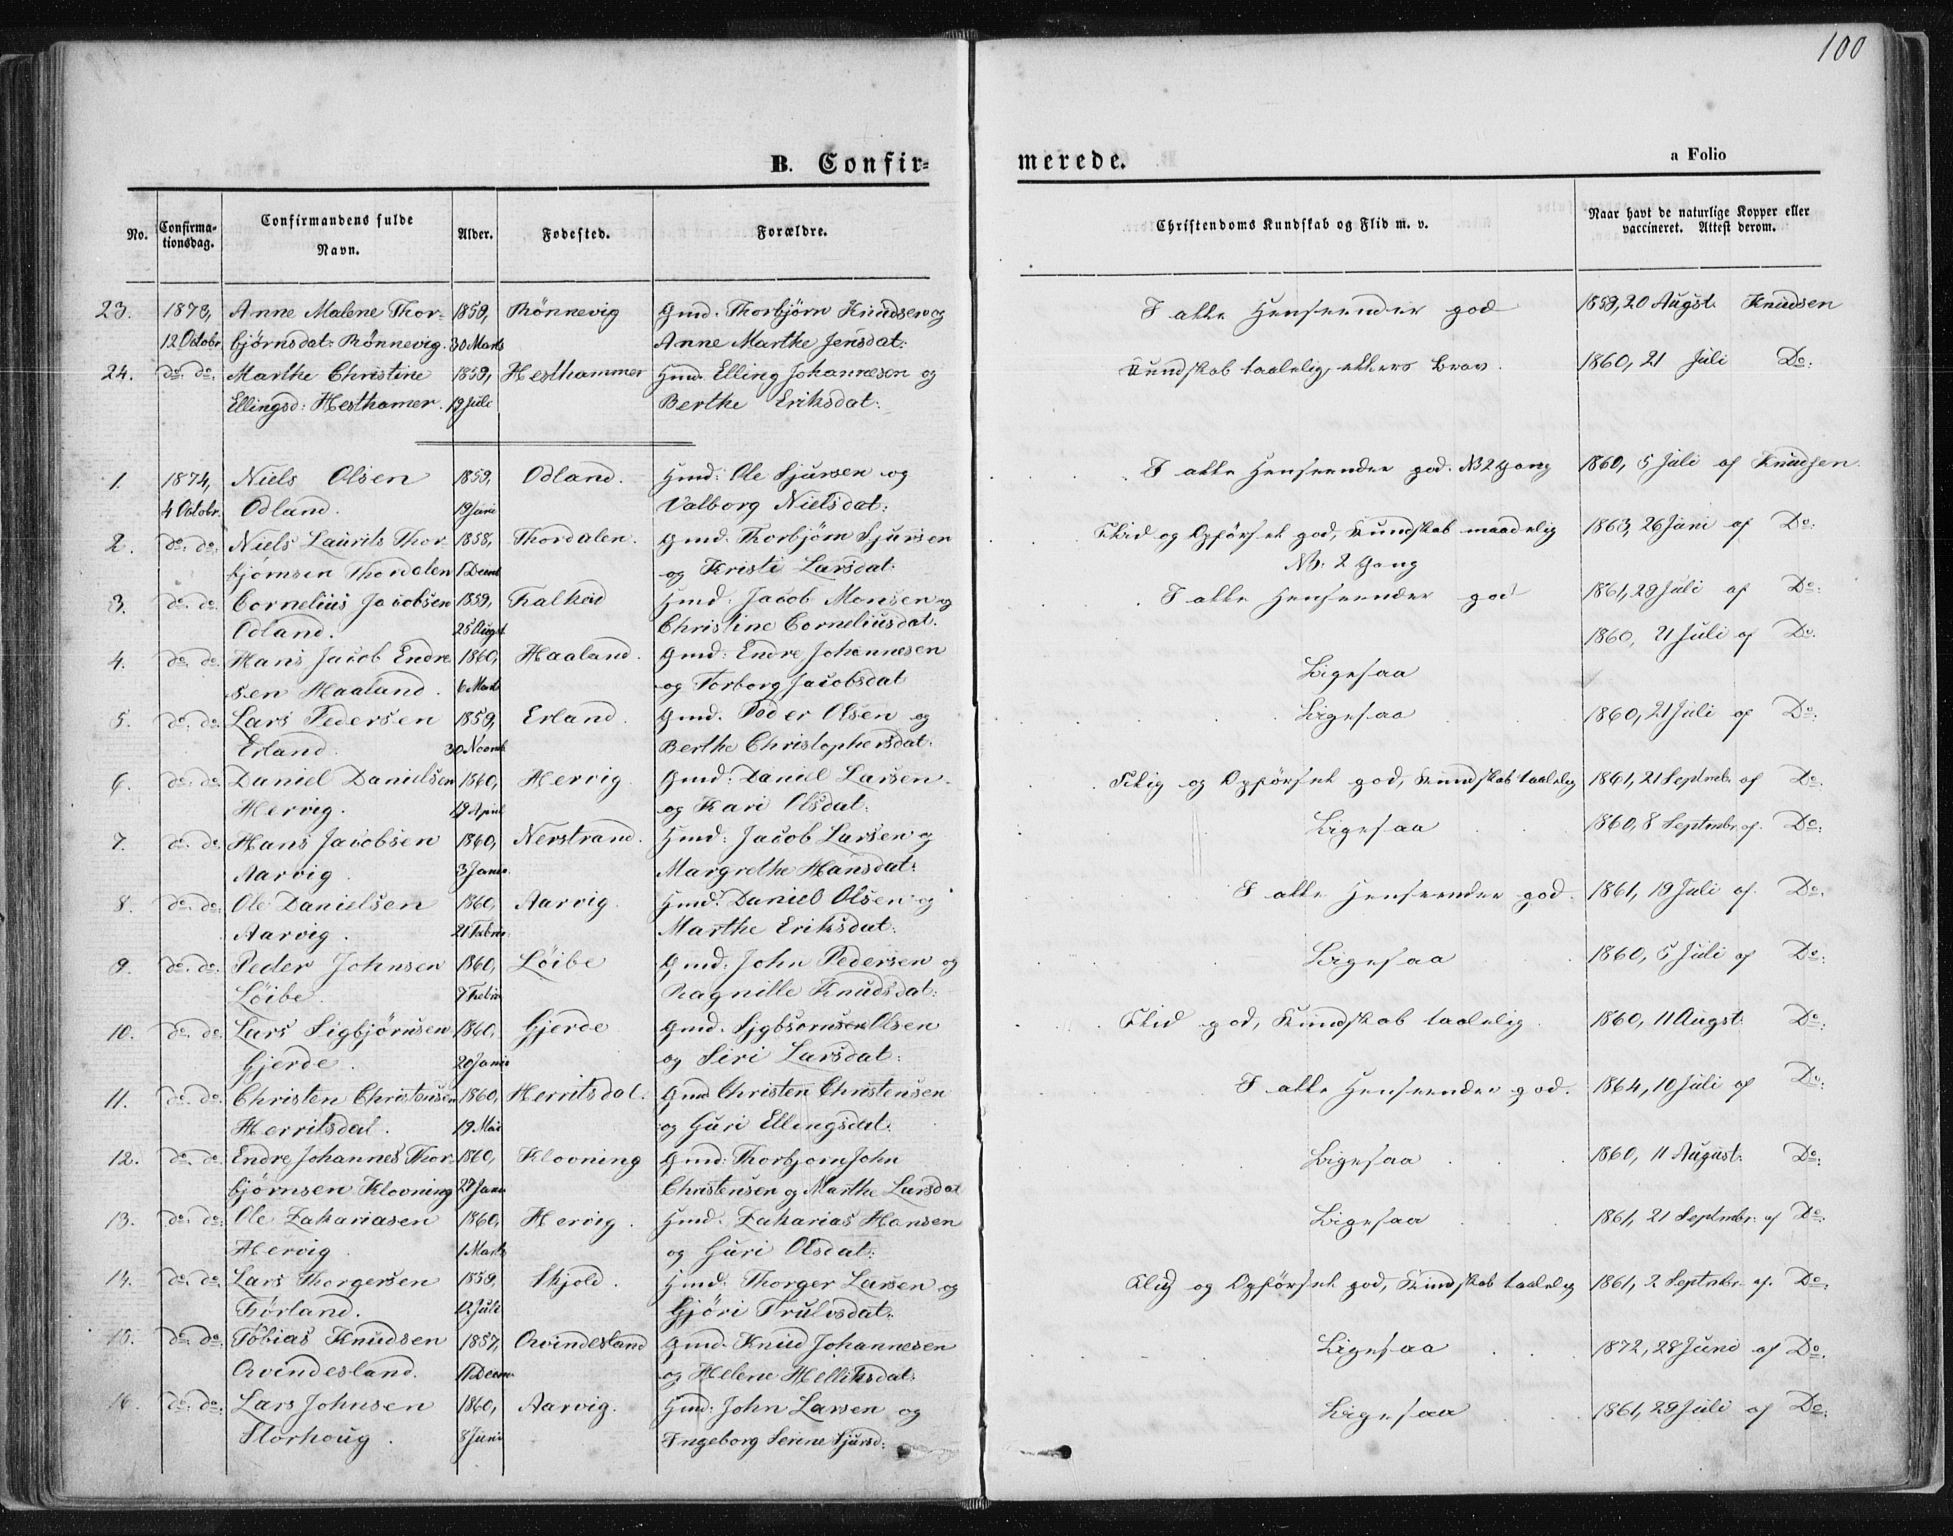 100
B. Confir=
merede.
a Folio
No.
Confirma-
tionsdag.
Confirmandens fulde
Navn.
Alder.
Fødested.
Forældre.
Christendoms Kundskab og Flid m. v.
Naar havt de naturlige Kopper eller
vaccineret. Attest derom.
23. 1873, Anne Malene Thor- 1859, Rönnevig Gmd. Thorbjørn Knudsen og I alle Henseender god 1859, 20 Augst. Knudsen
12 Octobr. bjørnsdat: Rönnevig. 30 Marts Anne Marthe Jensdat:
24. do. do. Marthe Christine 1859, Hesthammer Hmd. Elling Johannesen og Kundskab taalelig, ellers brav. 1860, 21 Juli Do:
Ellingsd: Hesthamer. 19 Juli Berthe Eriksdat:
1. 1874, Niels Olsen 1859, Odland. Hmd: Ole Sjursen og I alle Henseender god. NB 2 Gang 1860, 5 Juli af Knudsen.
4 Octobr. Odland. 19 Juni Valborg Nielsdat:
2. do. do. Niels Laurits Thor- 1858, Thordalen. Gmd. Thorbjørn Sjursen Flid og Opførsel god, Kundskab maadelig 1863, 26 Juni af Do:
bjørnsen Thordalen 1 Decmb og Kristi Larsdat: NB: 2 Gang
3. do. do. Cornelius Jacobsen 1859, Falkeid Hmd. Jacob Monsen og I alle Henseender god 1861, 29 Juli af Do:
Odland. 25 Augst Christine Corneliusdat.
4. do. do. Hans Jacob Endre- 1860, Haaland. Gmd: Endre Johannesen Ligesaa 1860, 21 Juli af Do:
sen Haaland. 6 Marts og Torborg Jacobsdat
5. do. do. Lars Pedersen 1859, Erland. Gmd. Peder Olsen og Ligesaa 1860, 21 Juli af Do:
Erland. 30 Novmb Berthe Christophersdat:
6. do. do. Daniel Danielsen 1860, Hervig. Gmd: Daniel Larsen Flid og Opførsel god, Kundskab taalelig 1861, 21 Septmbr. af Do:
Hervig. 19 April og Kari Olsdat:
7. do. do. Hans Jacobsen 1860, Nerstrand. Hmd: Jacob Larsen og Ligesaa 1860, 8 Septmbr. af. Do:
Aarvig. 3 Janr. Margrethe Hansdat:
8. do. do. Ole Danielsen 1860 Aarvig. Hmd: Daniel Olsen og I alle Henseender god. 1861, 19 Juli af. Do:
Aarvig. 21 Febr. Marthe Eriksdat:
9. do. do. Peder Johnsen 1860, Löibe Gmd. John Pedersen og Ligesaa 1860, 5 Juli af Do:
Löibe. 7 Febr. Ragnille Knudsdat:
10. do. do. Lars Sigbjørnsen 1860, Gjerde Gmd. Sigbjørnsen Olsen Flid god, Kundskab taalelig 1860, 11 Augst. Do:
Gjerde. 20 Janr. og Siri Larsdat:
11. do. do. Christen Christensen 1860, Herritsdal. Gmd Christen Christensen I alle Henseender god. 1864, 10 Juli af Do:
Herritsdal. 19 Mai og Guri Ellingsdat.
12. do. do. Endre Johannes Thor- 1860, Klovning Gmd: Thorbjørn John Ligesaa 1860, 11 August. Do:
bjørnsen Klovning 27 Janr Christensen og Marthe Larsdat
13. do. do. Ole Zakariasen 1860, Hervig. Hmd. Zakarias Hansen Ligesaa 1861, 21 Septmbr. af Do:
Hervig. 1 Marts og Guri Olsdat:
14. do. do. Lars Thorgersen 1859, Skjold. Hmd. Thorger Larsen og Flid og Opførsel god, Kundskab taalelig 1861, 2 Septmbr. af. Do:
Førland. 12 Juli Gjöri Trulvsdat:
15. do. do. Tobias Knudsen 1857, Qvindesland Gmd. Knud Johannesen Ligesaa 1872, 28 Juni af Do:
Qvindesland. 11 Decm og Helene Helliksdat.
16. do. do. Lars Johnsen 1860, Aarvig. Hmd: John Larsen og Ligesaa 1861, 29 Juli af Do:
Storhoug. 8 Juni Ingeborg Serine Sjursd: